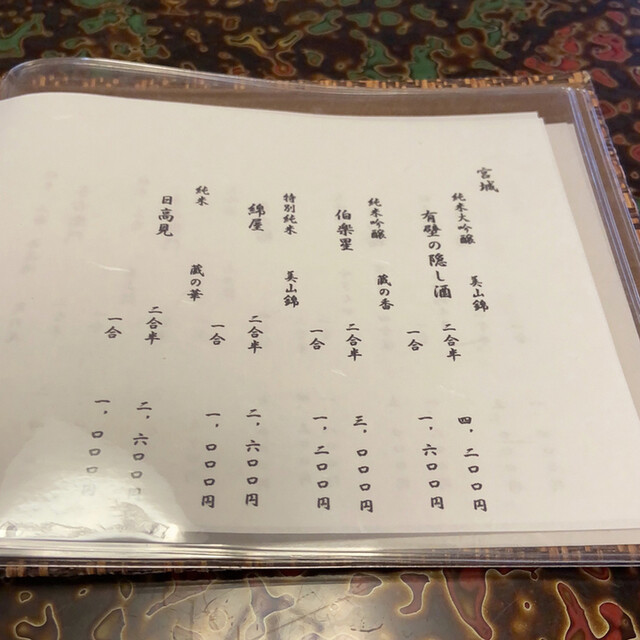 宮城
純米大吟醸 美山錦
有壁の隠し酒 二合半 四、二〇〇円
一合 一、六〇〇円
純米吟醸 蔵の香
伯楽星 二合半 三、〇〇〇円
一合 一、二〇〇円
特別純米 美山錦
綿屋 二合半 二、六〇〇円
一合 一、〇〇〇円
純米 蔵の華
日高見 二合半 二、六〇〇
一合 一、〇〇〇